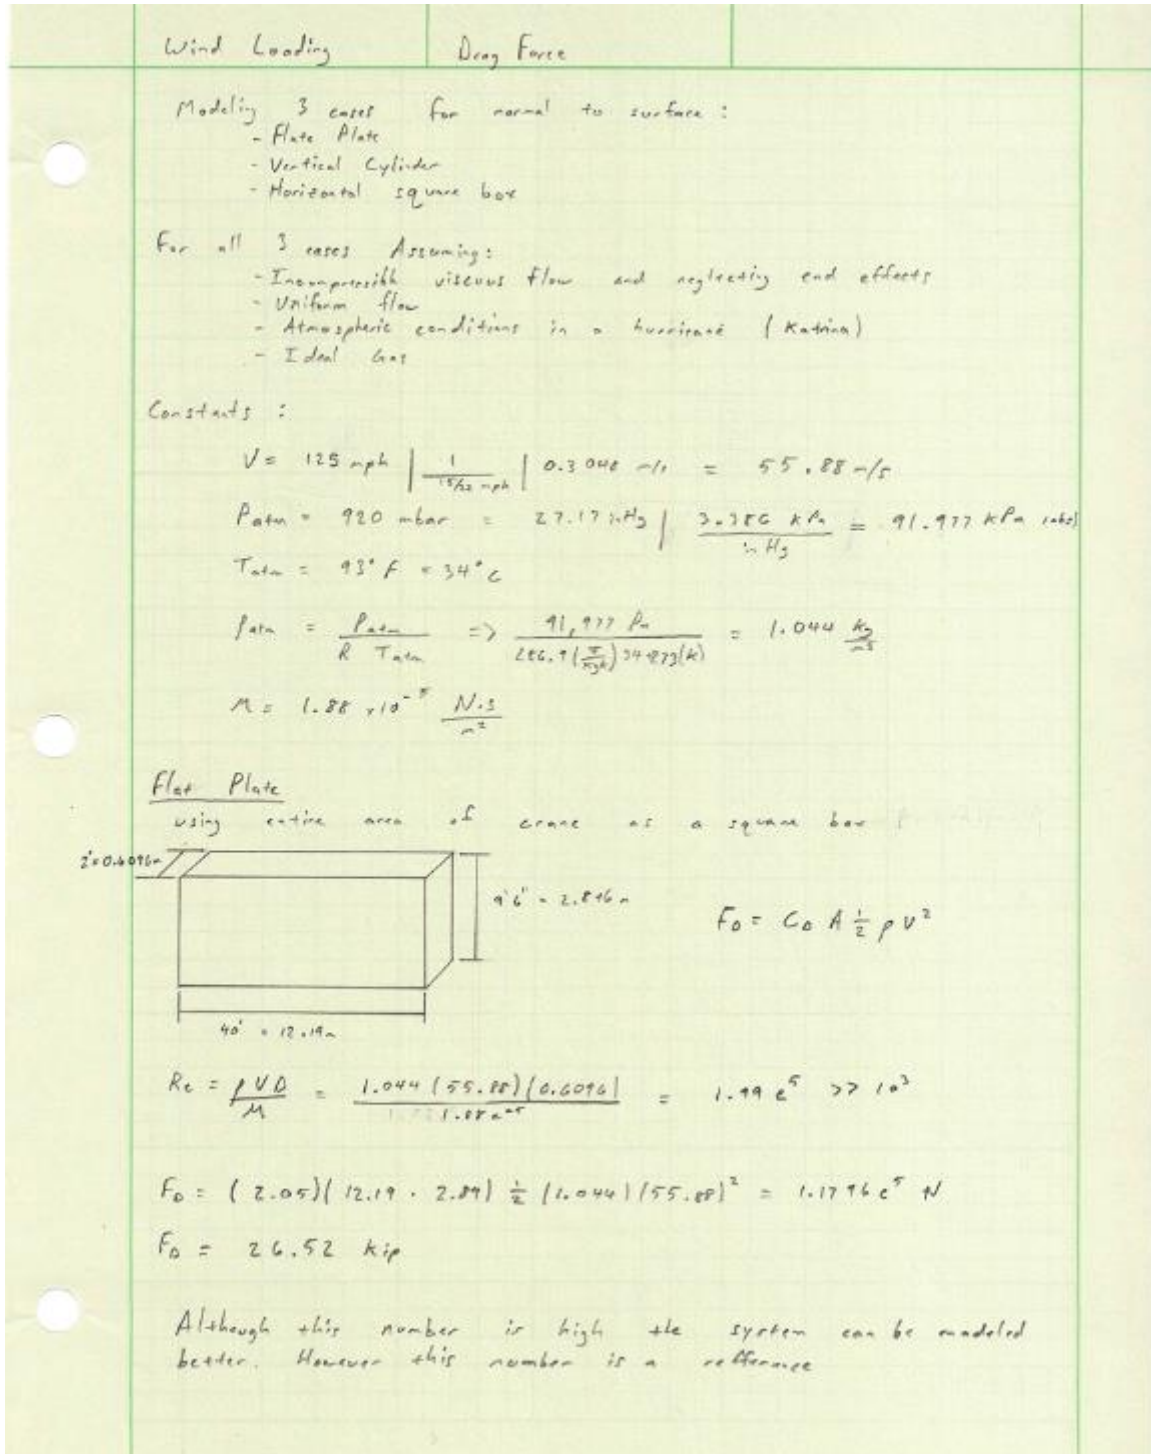 Wind Loading
Drag Force
Modeling 3 cases for normal to surface :
- Flate Plate
- Vertical Cylinder
- Horizontal square box
For all 3 cases Assuming:
- Incompressible viscous flow and neglecting end effects
- Uniform flow
- Atmospheric conditions in a hurricane (Katrina)
- Ideal Gas
Constants :
V = 125 mph | 1 / 15/22 mph | 0.3048 m/s = 55.88 m/s
Patm = 920 mbar = 27.17 inHg | 3.386 kPa / in Hg = 91.977 kPa (abs)
Tatm = 93° F = 34° C
ρatm = Patm / R Tatm => 91,977 Pa / 286.9 (J/kgK) 34+273(K) = 1.044 kg/m3
M = 1.88 x10^-5 N.s / m^2
Flat Plate
using entire area of crane as a square box
2' = 0.6096m
9'6" =
FD = CD A 1/2 ρ V^2
40' = 12.19m
Re = ρVD / M = 1.044 (55.88)(0.6096) / 1.88e^-5 = 1.99 e^5 >> 10^3
FD = (2.05)(12.19 · 2.89) 1/2 (1.044)(55.88)^2 = 1.1796 e^5 N
FD = 26.52 kip
Although this number is high the system can be modeled
better. However this number is a refference